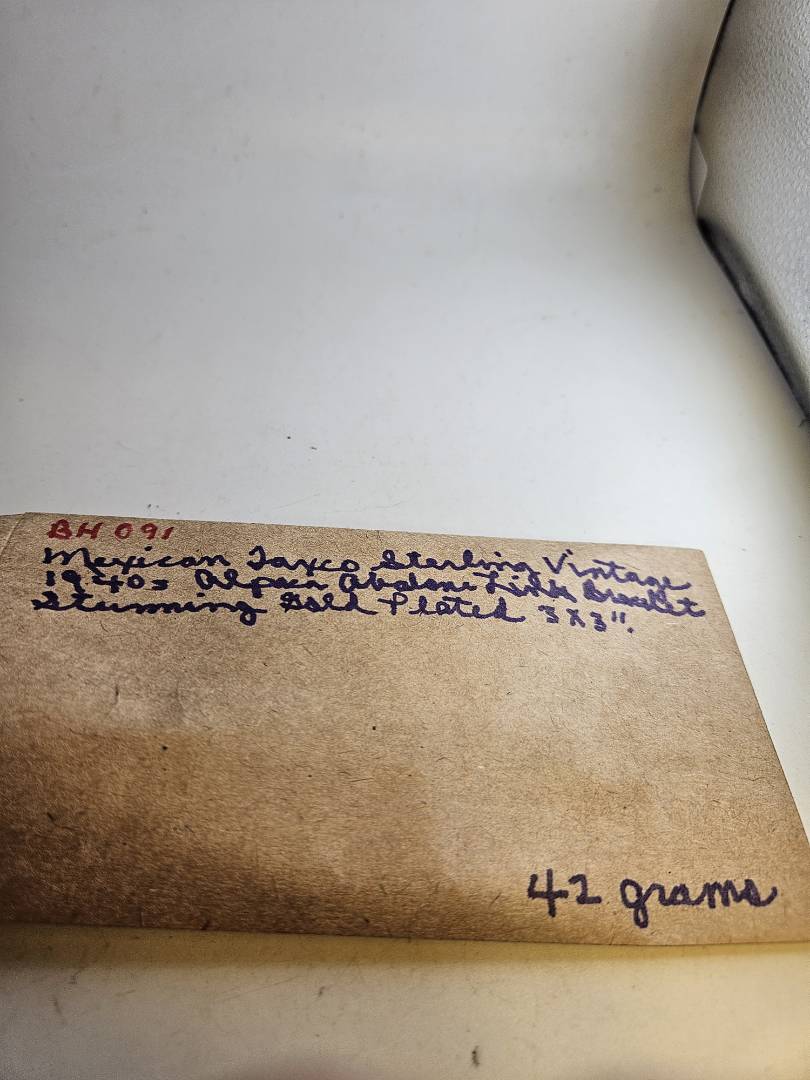 BH 091
Mexican Taxco Sterling Vintage
1940s Alpaca Abalone Link Bracelet
Stunning Gold Plated 3 X 3".
42 grams